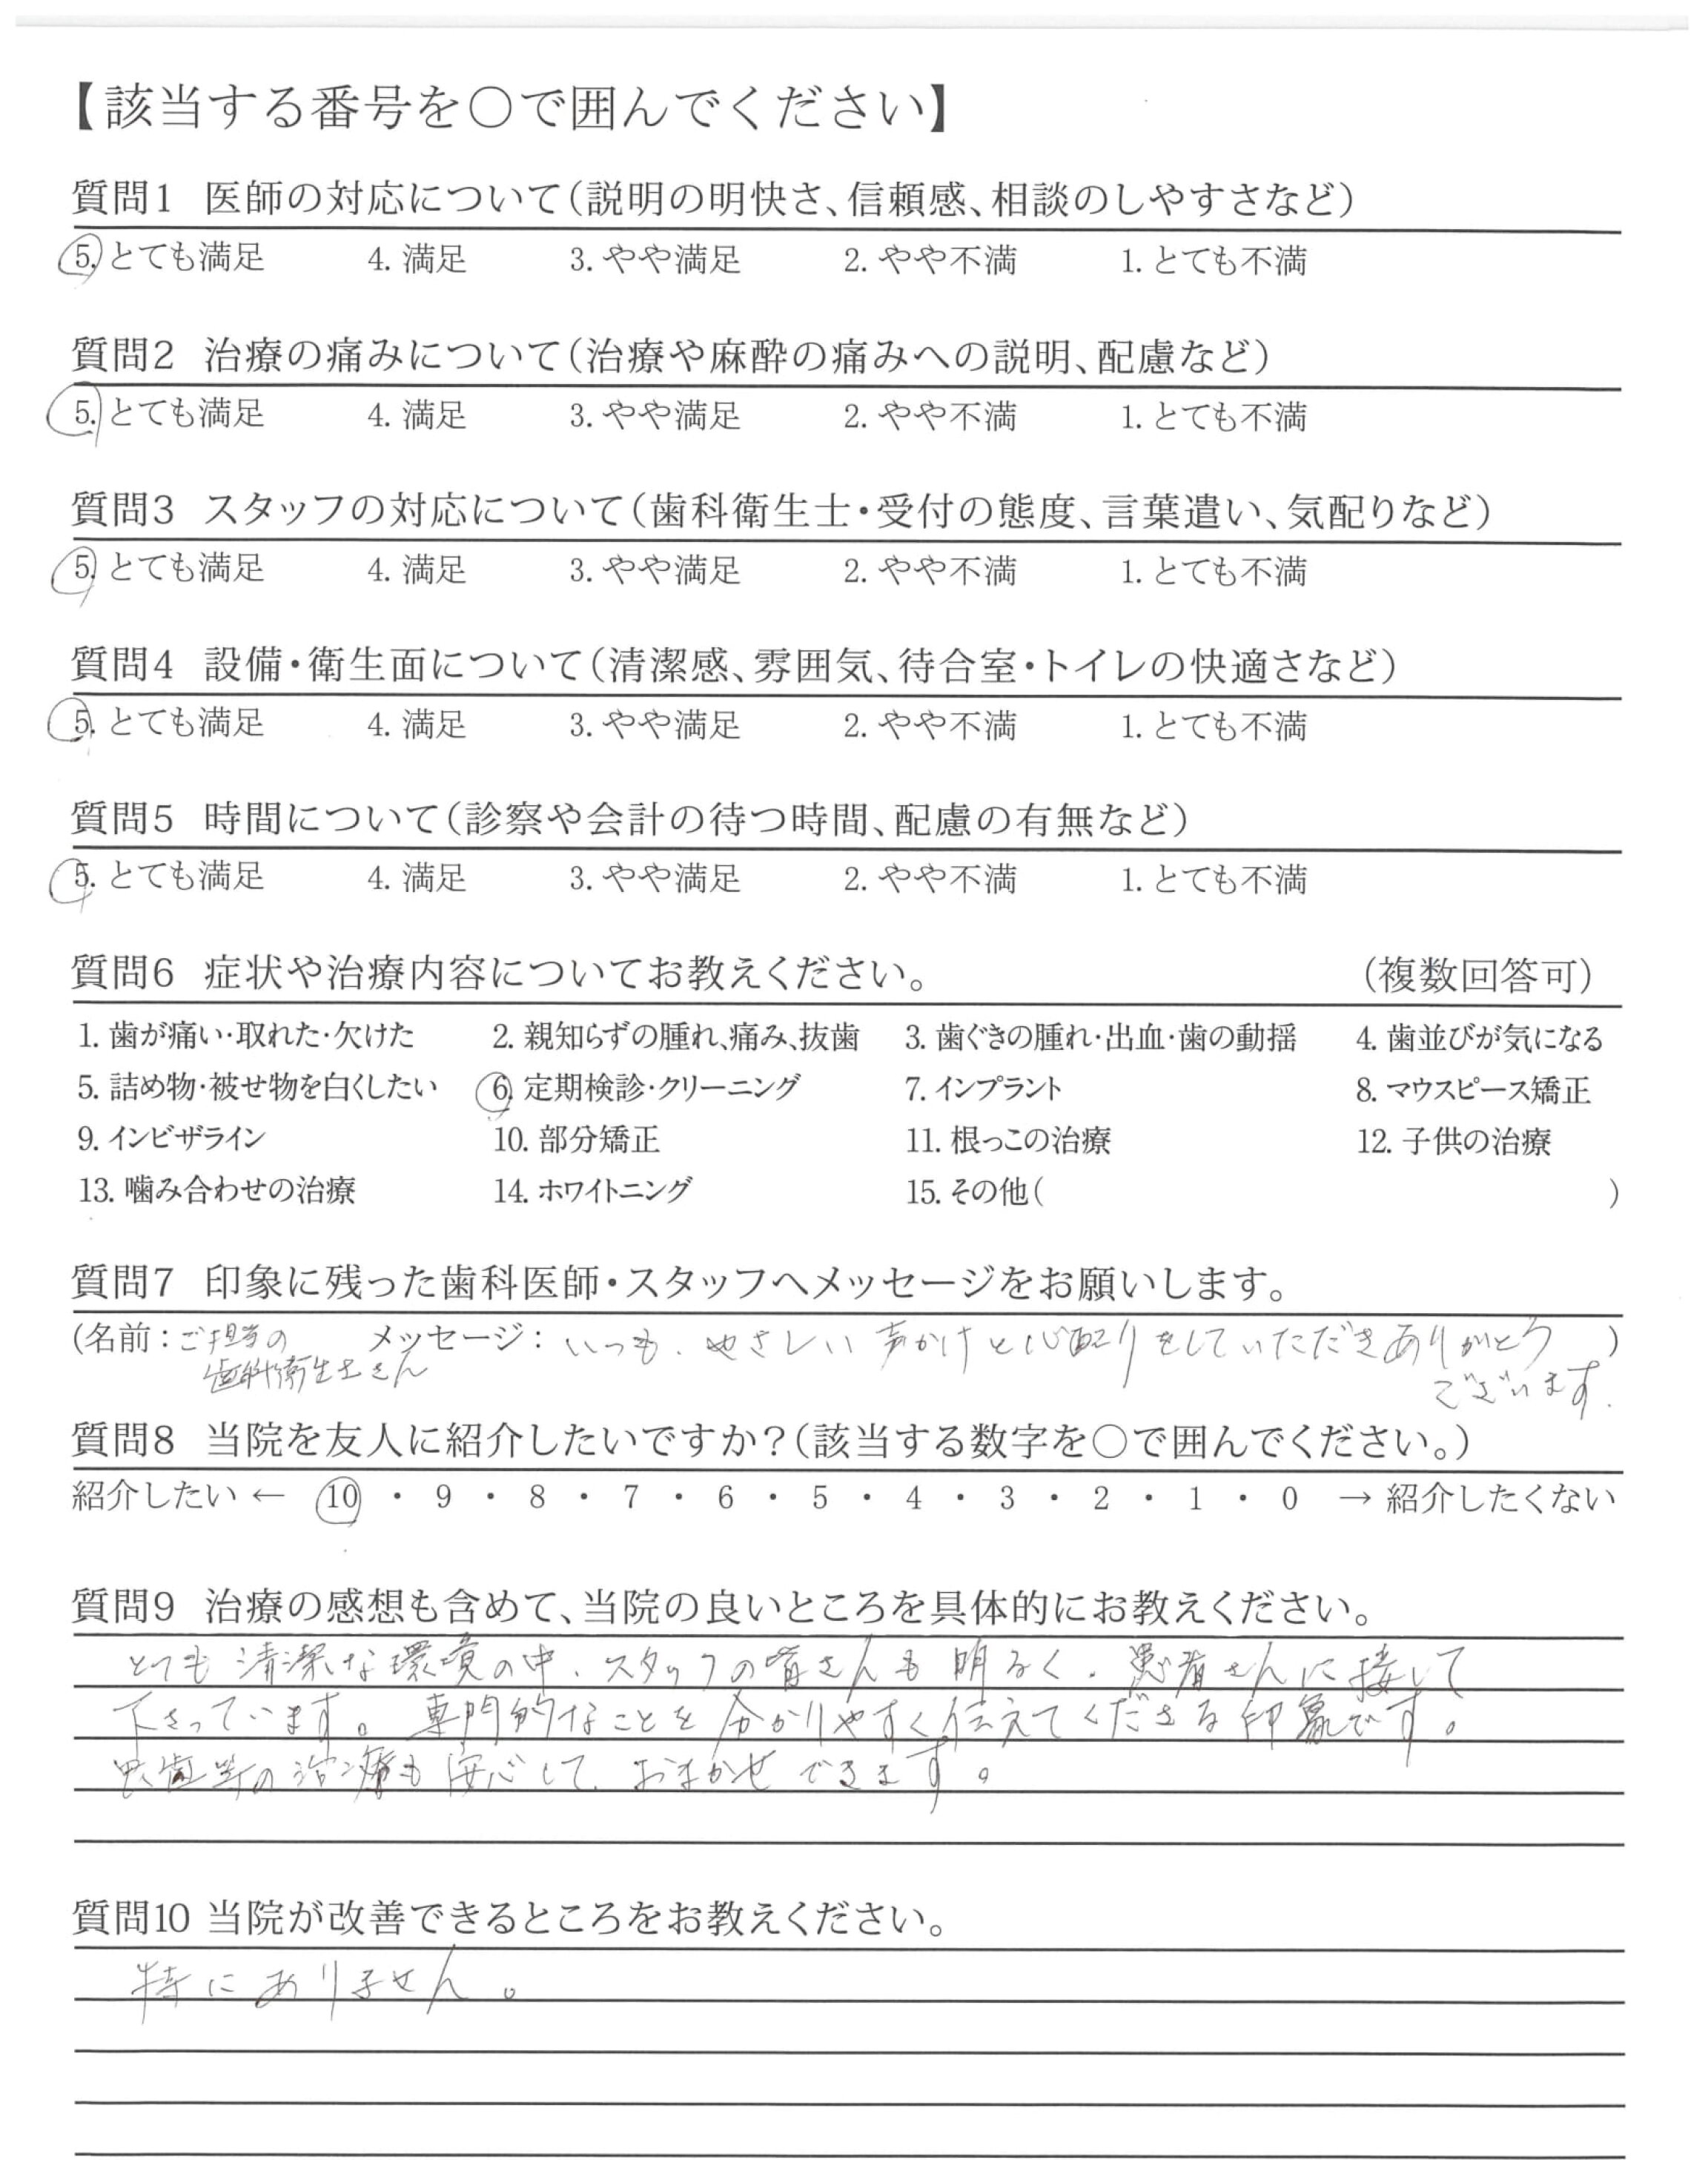 【該当する番号を○で囲んでください】
質問1 医師の対応について(説明の明快さ、信頼感、相談のしやすさなど)
5. とても満足 4. 満足 3. やや満足 2. やや不満 1. とても不満
質問2 治療の痛みについて(治療や麻酔の痛みへの説明、配慮など)
5. とても満足 4. 満足 3. やや満足 2. やや不満 1. とても不満
質問3 スタッフの対応について(歯科衛生士・受付の態度、言葉遣い、気配りなど)
5. とても満足 4. 満足 3. やや満足 2. やや不満 1. とても不満
質問4 設備・衛生面について(清潔感、雰囲気、待合室・トイレの快適さなど)
5. とても満足 4. 満足 3. やや満足 2. やや不満 1. とても不満
質問5 時間について(診察や会計の待つ時間、配慮の有無など)
5. とても満足 4. 満足 3. やや満足 2. やや不満 1. とても不満
質問6 症状や治療内容についてお教えください。 (複数回答可)
1. 歯が痛い・取れた・欠けた 2. 親知らずの腫れ、痛み、抜歯 3. 歯ぐきの腫れ・出血・歯の動揺 4. 歯並びが気になる
5. 詰め物・被せ物を白くしたい 6. 定期検診・クリーニング 7. インプラント 8. マウスピース矯正
9. インビザライン 10. 部分矯正 11. 根っこの治療 12. 子供の治療
13. 噛み合わせの治療 14. ホワイトニング 15. その他( )
質問7 印象に残った歯科医師・スタッフへメッセージをお願いします。
(名前：ご担当の メッセージ：いつも、やさしい声かけと心配りをしていただきありがとう )
歯科衛生士さん ございます.
質問8 当院を友人に紹介したいですか？(該当する数字を○で囲んでください。)
紹介したい ← 10 ・ 9 ・ 8 ・ 7 ・ 6 ・ 5 ・ 4 ・ 3 ・ 2 ・ 1 ・ 0 → 紹介したくない
質問9 治療の感想も含めて、当院の良いところを具体的にお教えください。
とても清潔な環境の中、スタッフの皆さんも明るく、患者さんに接して
下さっています。専門的なことを分かりやすく伝えてくださる印象です。
虫歯等の治療も安心して、おまかせできます。
質問10 当院が改善できるところをお教えください。
特にありません。